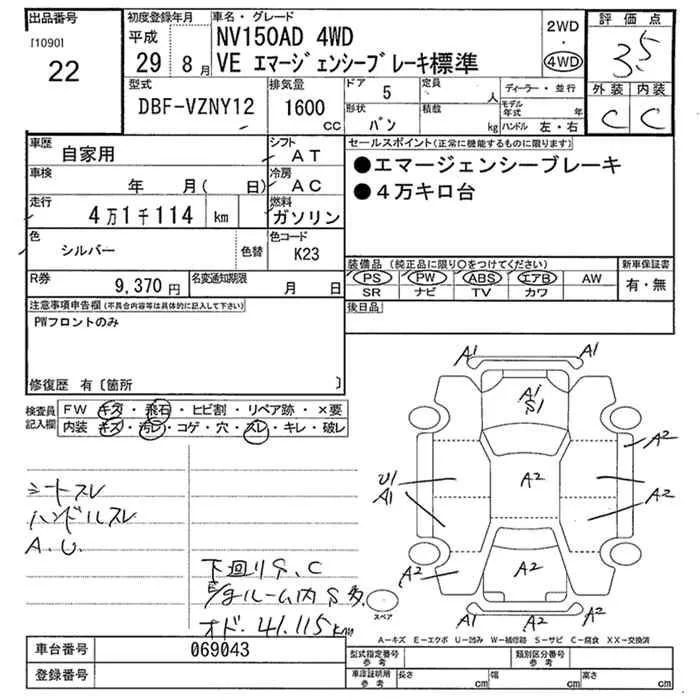 出品番号
[1090]
22
初度登録年月
平成
29 8月
車名・グレード
NV150AD 4WD
VE エマージェンシーブレーキ標準
2WD
・
4WD
評価点
3.5
外装 内装
C C
型式
DBF-VZNY12
排気量
1600
CC
ドア 5
定員 人
形状 バン
積載 kg
ディーラー・並行
モデル年式 年
ハンドル 左・右
車歴
自家用
シフト
AT
車検
年 月( 日)
冷房
AC
走行
4万1千114 km
燃料
ガソリン
色
シルバー
色替
色コード
K23
R券
9,370円
名変通知期限
月 日
セールスポイント(正常に機能するものに限ります)
●エマージェンシーブレーキ
●4万キロ台
装備品(純正品に限り○をつけてください)
PS PW ABS エアB AW
SR ナビ TV カワ
新車保証書
有・無
後日品
注意事項申告欄(不具合内容等は具体的に記入して下さい)
PWフロントのみ
修復歴 有〔箇所 〕
検査員
記入欄
FW キズ・飛石・ヒビ割・リペア跡・×要
内装 キズ・汚レ・コゲ・穴・スレ・キレ・破レ
シートスレ
ハンドルスレ
A.U.
下回りS、C
E/gルーム内S多
オド.41.115km
A1 A1
A1
S1
A2
U1
A1
A2
A2
A2
A2
A2
A1 A2 A2
スペア
A-キズ E-エクボ U-凹み W-補修跡 S-サビ C-腐食 XX-交換済
車台番号
069043
登録番号
型式指定番号
参考
類別区分番号
参考
車庫証明用
参考
長さ cm
幅 cm
高さ cm